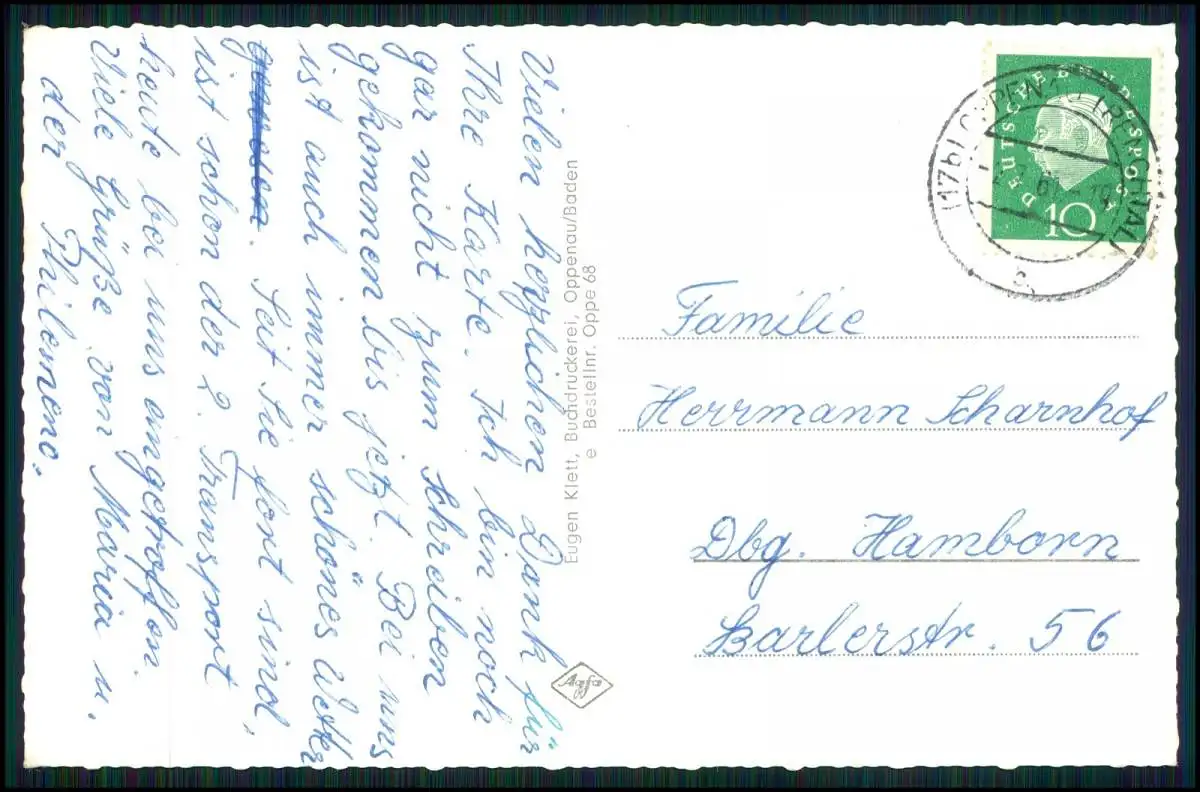 Vielen herzlichen Dank für
Ihre Karte. Ich bin noch
gar nicht zum Schreiben
gekommen bis jetzt. Bei uns
ist auch immer schönes Wetter
gewesen. Seit Sie fort sind,
ist schon der 2. Transport
heute bei uns eingetroffen.
Viele Grüße von Maria u.
der Philemene.
Eugen Klett, Buchdruckerei, Oppenau/Baden
e Bestellnr. Oppe 68
Agfa
DEUTSCHE BUNDESPOST
10
(17b) OPPENAU (RENCHTAL)
61
c
Familie
Herrmann Scharnhof
Dbg. Hamborn
Barlerstr. 56